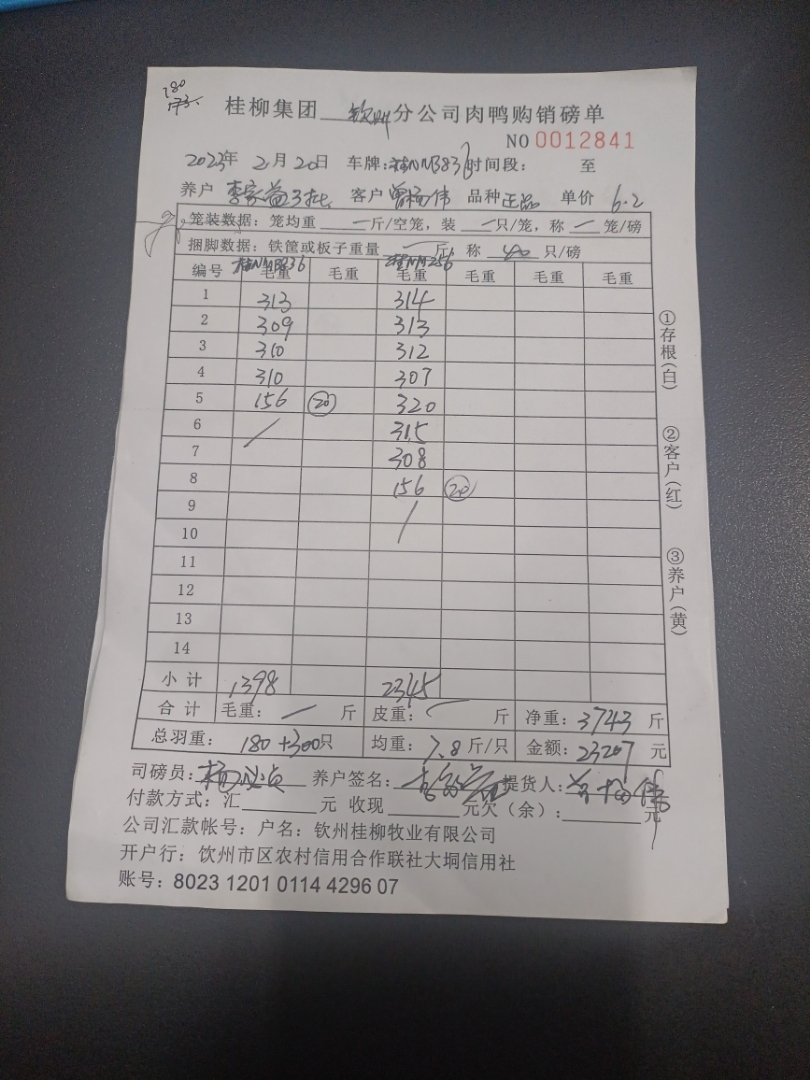 180
桂柳集团 钦州 分公司肉鸭购销磅单
NO 0012841
2023年 2月 20日 车牌:桂NNB836 时间段: 至
养户 李家益 客户 曾杨伟 品种 正品 单价 6.2
笼装数据: 笼均重 一 斤/空笼, 装 一 只/笼, 称 一 笼/磅
捆脚数据: 铁筐或板子重量 一 斤, 称 40 只/磅
桂NNB836
编号 毛重 毛重 毛重 毛重 毛重 毛重
1 313 314
2 309 313
3 310 312
4 310 307
5 156 20 320
6 / 315
7 308
8 156 20
9 /
10
11
12
13
14
小计 1398 2345
合计 毛重: 一 斤 皮重: 一 斤 净重: 3743 斤
总羽重: 180+300只 均重: 7.8 斤/只 金额: 23207 元
司磅员: 养户签名: 提货人: 曾杨伟
付款方式: 汇 元 收现 元 欠(余): 元
公司汇款帐号: 户名: 钦州桂柳牧业有限公司
开户行: 饮州市区农村信用合作联社大垌信用社
账号: 8023 1201 0114 4296 07
①存根(白)
②客户(红)
③养户(黄)